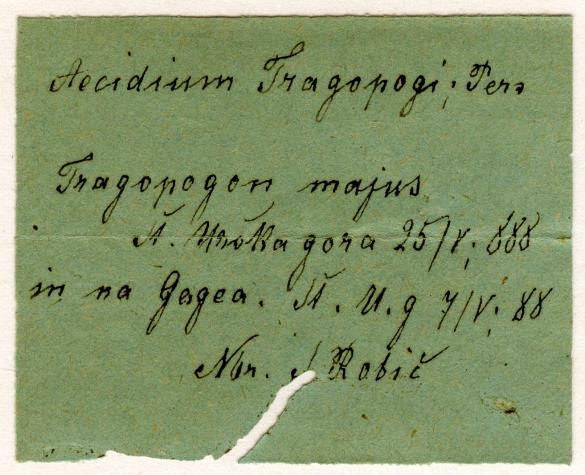 Aecidium Tragopogi; Pers
Tragopogon majus
Št. Urška gora 25/V; 888
in na Gagea. Št. U. g 7/V; 88
Nbr. S Robič